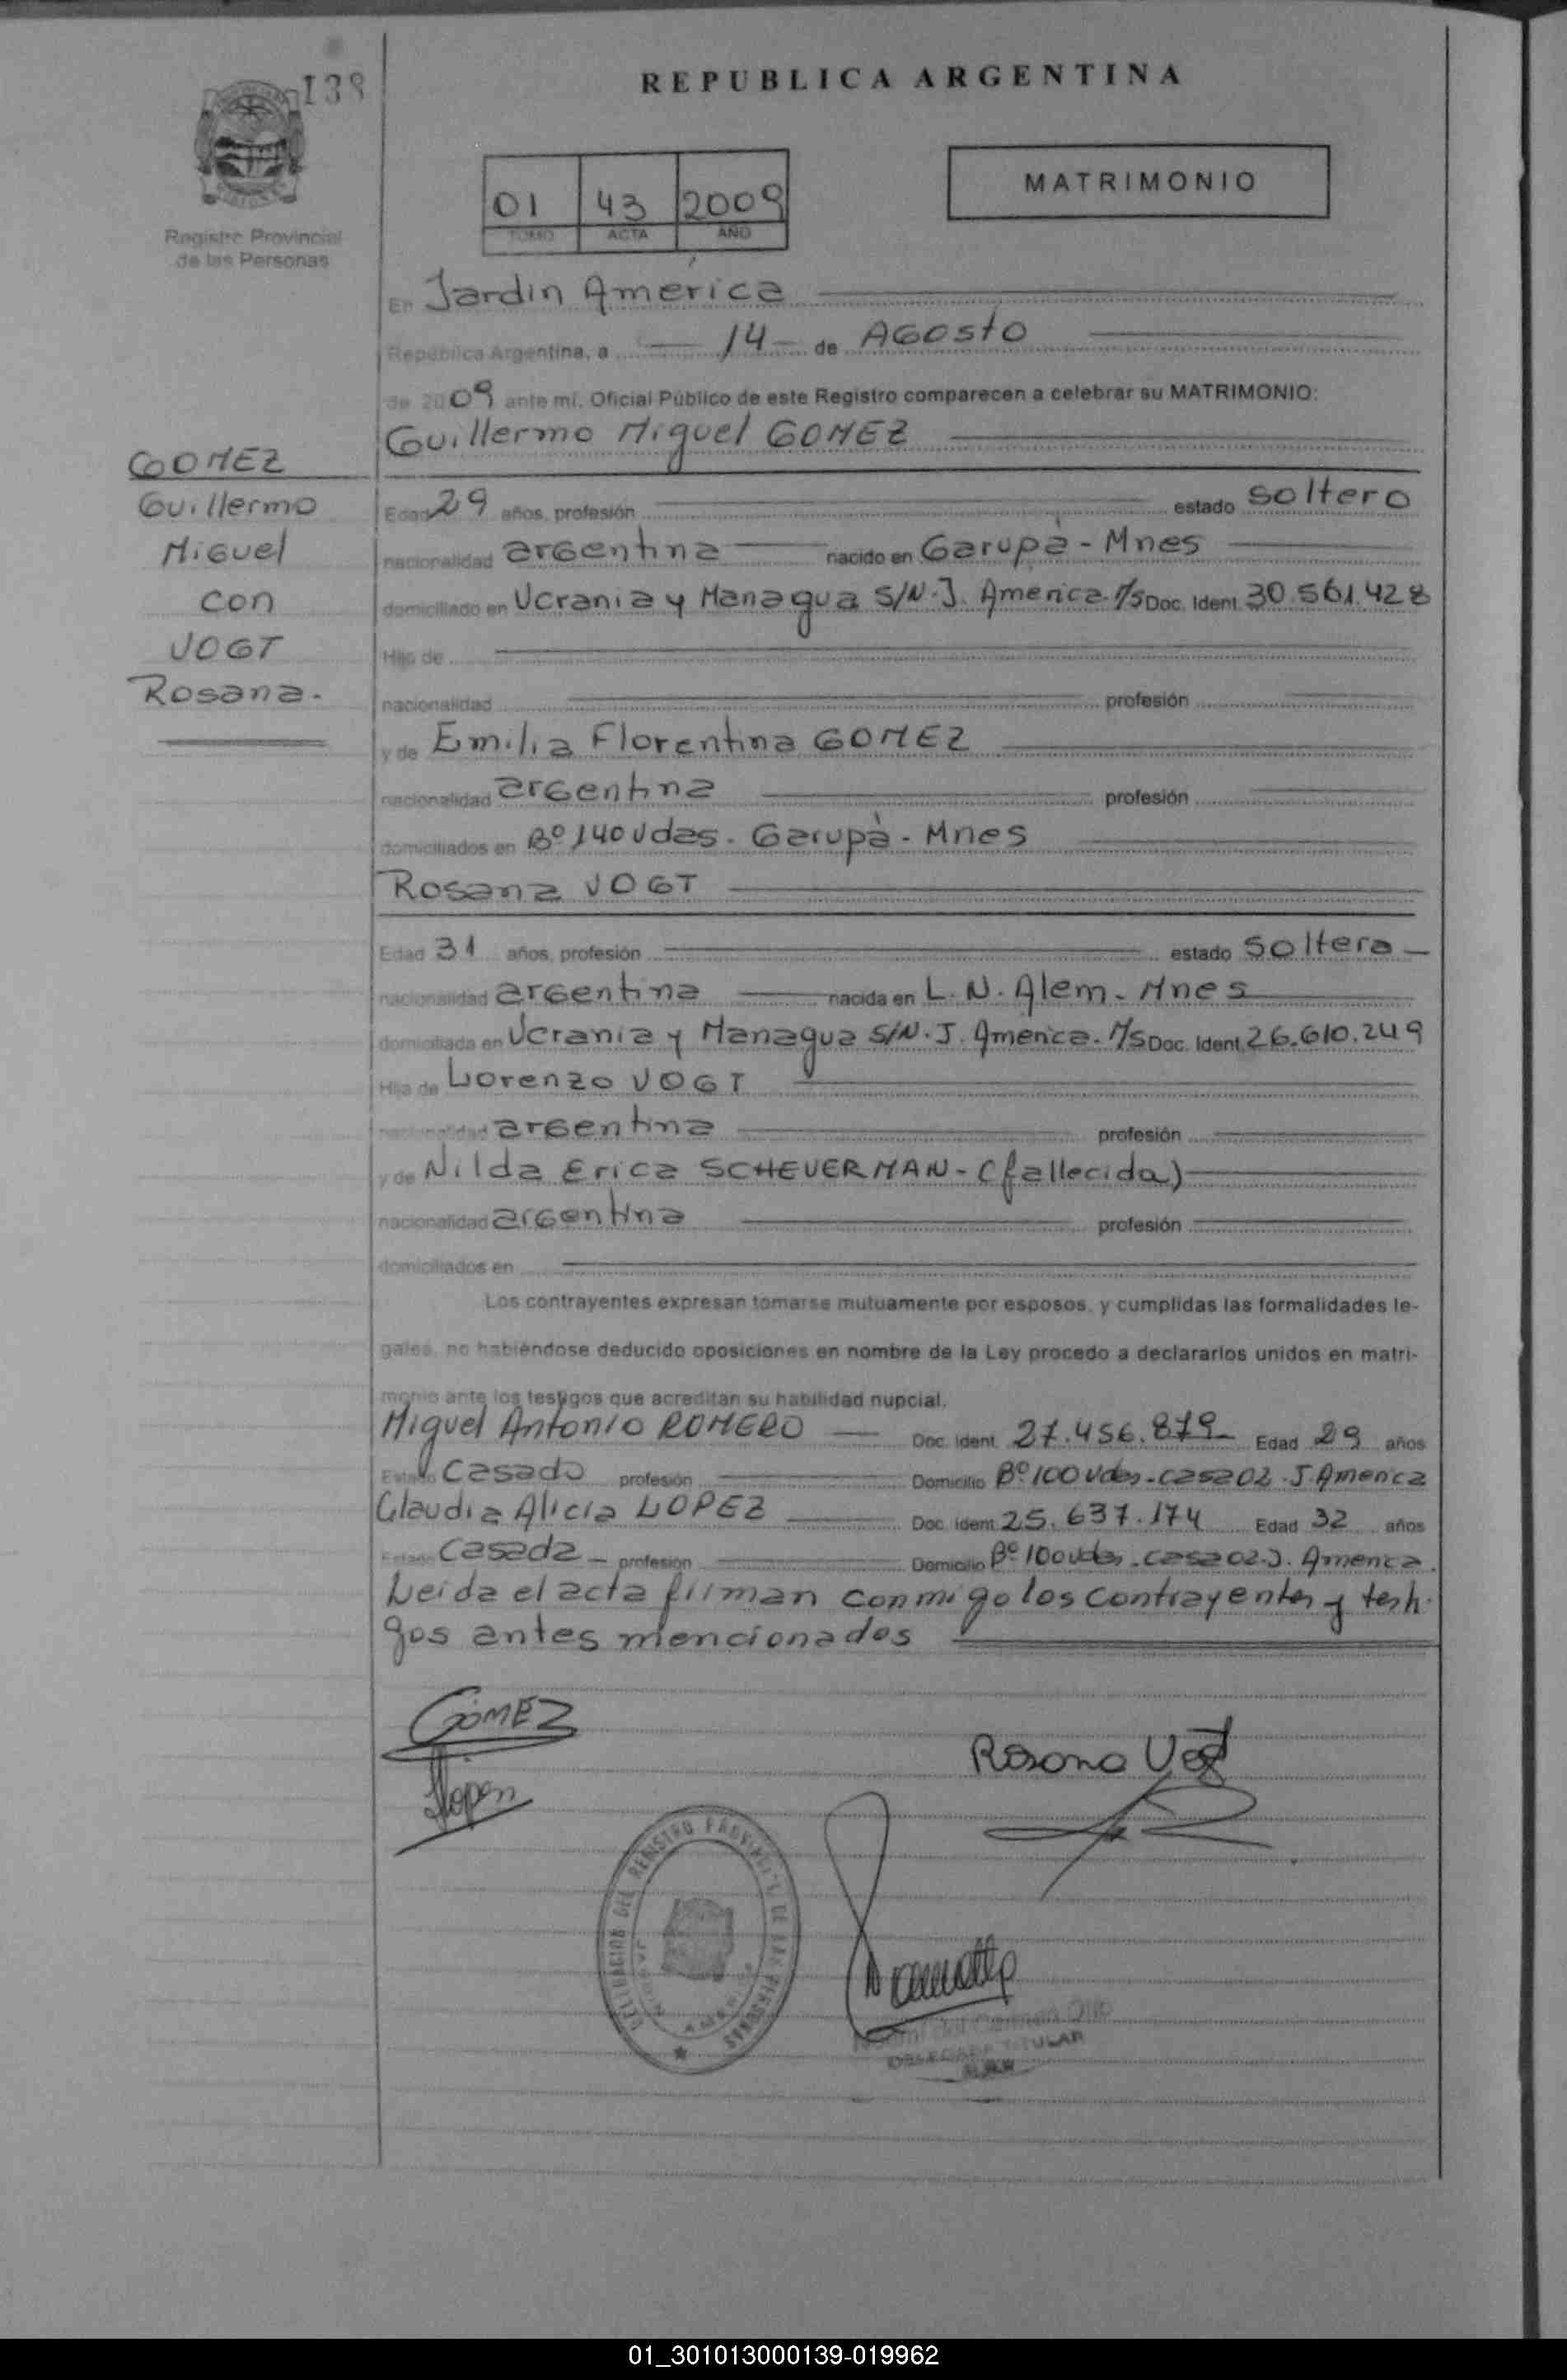 138
REPUBLICA ARGENTINA
01 43 2009
TOMO ACTA AÑO
MATRIMONIO
Registro Provincial
de las Personas
En Jardin America
República Argentina, a 14 de Agosto
de 2009 ante mí, Oficial Público de este Registro comparecen a celebrar su MATRIMONIO:
Guillermo Miguel GOMEZ
GOMEZ
Guillermo
Miguel
con
VOGT
Rosana.
Edad 29 años, profesión estado soltero
nacionalidad argentina nacido en Garupà - Mnes
domiciliado en Ucrania y Managua S/N. J. America. M/s Doc. Ident. 30.561.428
Hijo de
nacionalidad profesión
y de Emilia Florentina GOMEZ
nacionalidad argentina profesión
domiciliados en Bº 140 Vdas. Garupà - Mnes
Rosana VOGT
Edad 31 años, profesión estado soltera
nacionalidad argentina nacida en L. N. Alem. Mnes
domiciliada en Ucrania y Managua S/N. J. America. M/s Doc. Ident. 26.610.249
Hija de Lorenzo VOGT
nacionalidad argentina profesión
y de Nilda Erica SCHEUERMAN - (fallecida)
nacionalidad argentina profesión
domiciliados en
Los contrayentes expresan tomarse mutuamente por esposos, y cumplidas las formalidades le-
gales, no habiéndose deducido oposiciones en nombre de la Ley procedo a declararlos unidos en matri-
monio ante los testigos que acreditan su habilidad nupcial.
Miguel Antonio ROMERO Doc. Ident. 27.456.879 Edad 29 años
Estado Casado profesión Domicilio Bº 100 Vdas. casa 02. J. America
Claudia Alicia LOPEZ Doc. Ident. 25.637.174 Edad 32 años
Estado Casada profesión Domicilio Bº 100 Vdas. casa 02. J. America.
Leida el acta firman conmigo los contrayentes y testi-
gos antes mencionados
GOMEZ
Rosana Vogt
DELEGACION DEL REGISTRO PROVINCIAL DE LAS PERSONAS
del Carmen
DELEGADA TITULAR
01_301013000139-019962